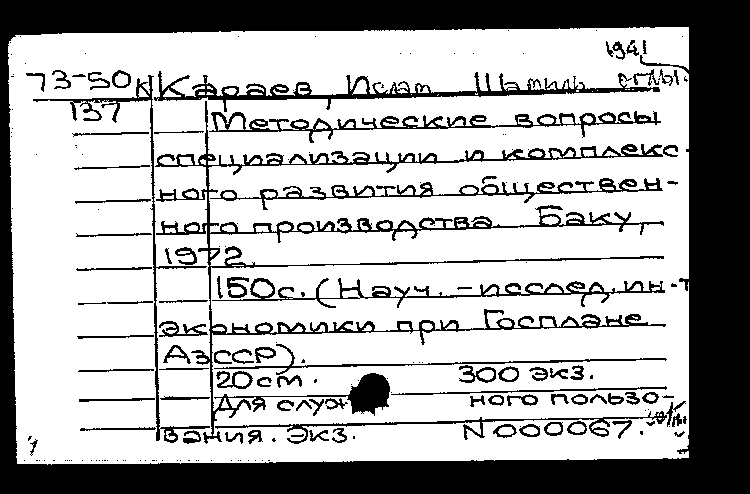 1941
73-50к Караев, Ислам Шамиль оглы.
137 Методические вопросы
специализации и комплекс-
ного развития обществен-
ного производства. Баку,
1972.
150с. (Науч.-исслед. ин-т
экономики при Госплане
АзССР).
20см. 300 экз.
Для служ ного пользо-
вания. Экз. N000067.